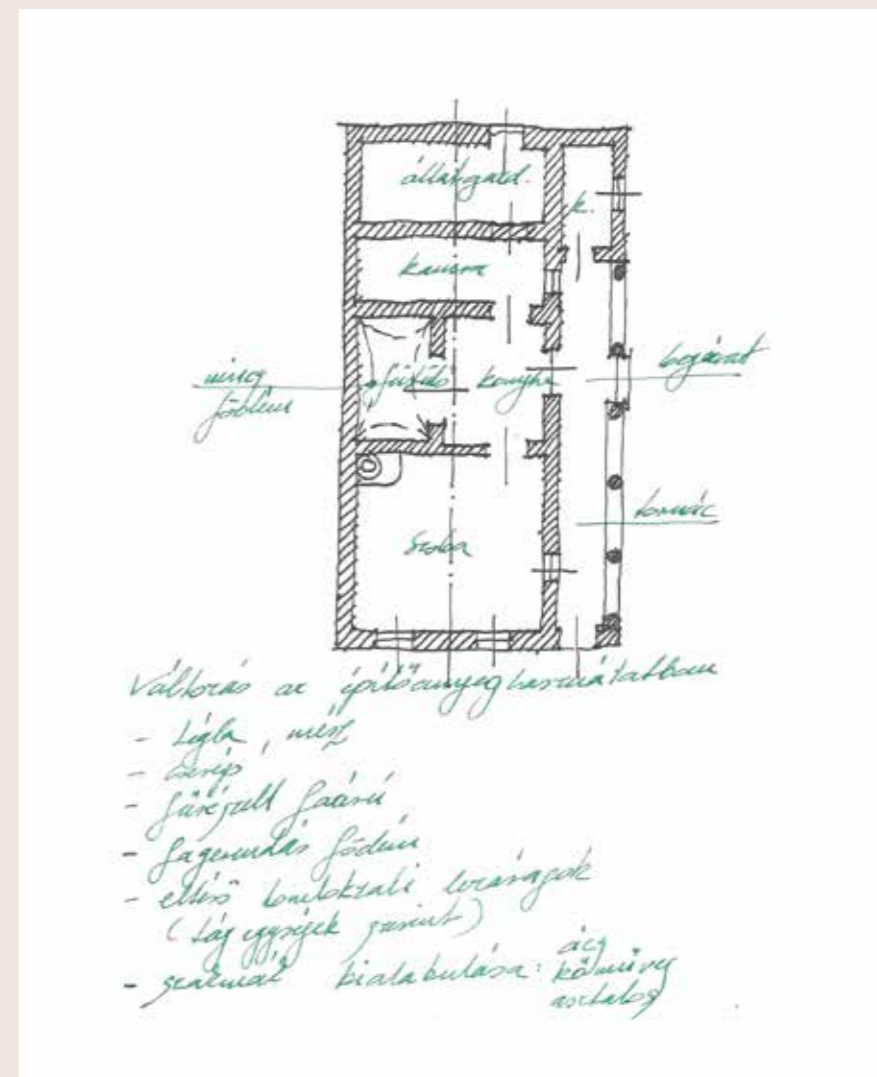 állatgazd.
k.
kamra
nincs
födém
füstölő
konyha
bejárat
tornác
szoba
Változás az építőanyag használatban
- tégla, mész
- cserép
- fűrészelt faárú
- fagerendás födém
- eltérő homlokzati
(tág egységek szerint)
- szakmák kialakulása: ács
kőműves
asztalos